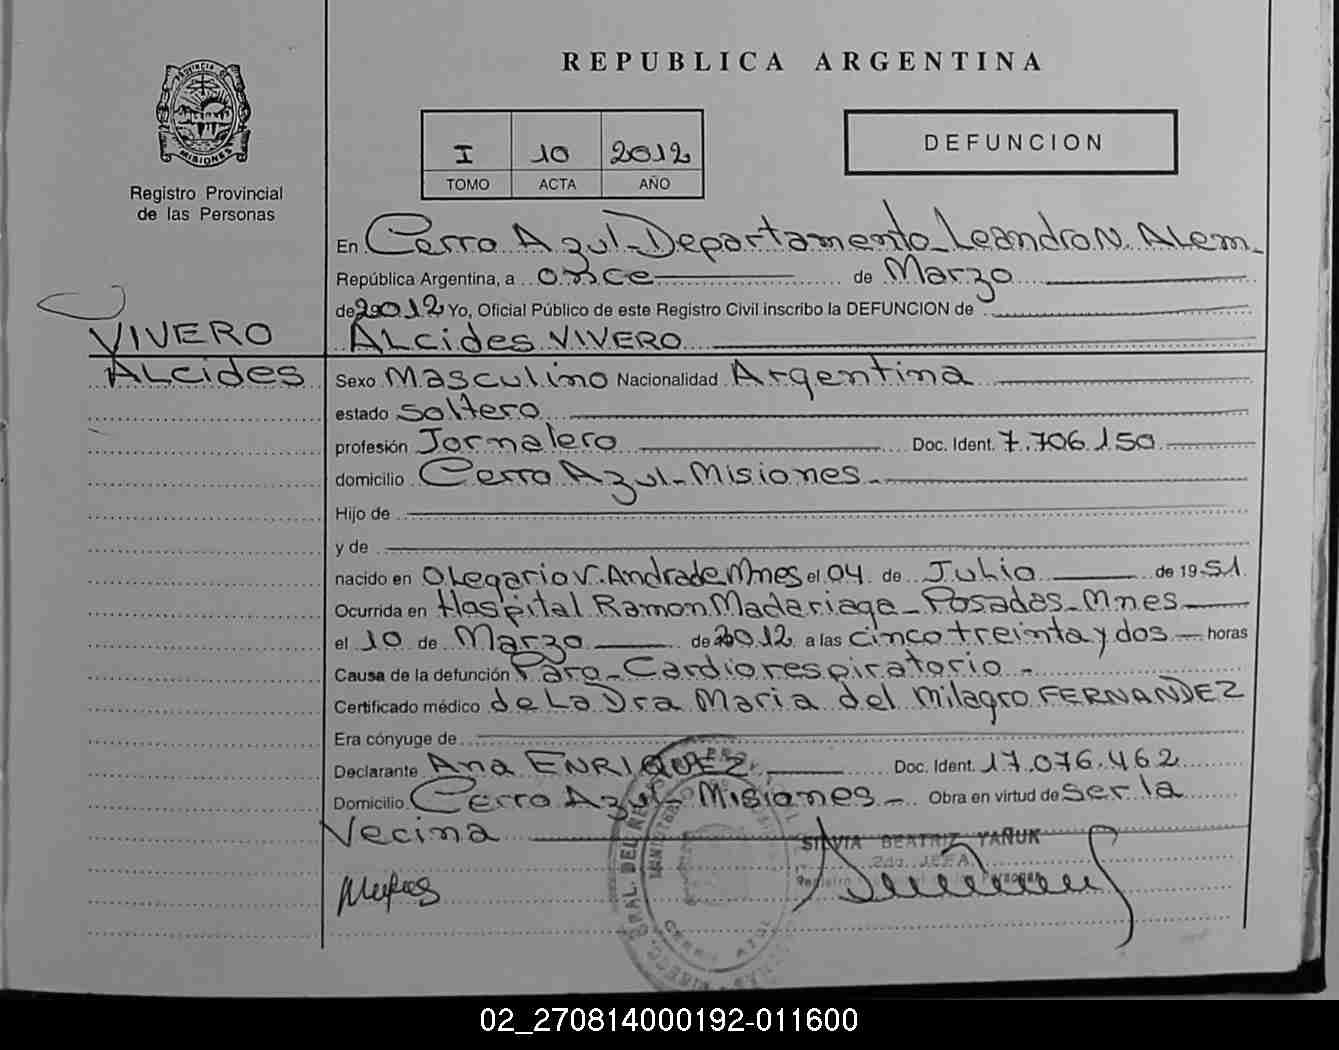 REPUBLICA ARGENTINA
PROVINCIA DE
MISIONES
Registro Provincial
de las Personas
I 10 2012
TOMO ACTA AÑO
DEFUNCION
En Cerro Azul - Departamento - Leandro N. Alem -
República Argentina, a once de Marzo
de 2012 Yo, Oficial Público de este Registro Civil inscribo la DEFUNCION de
VIVERO
ALcides VIVERO
ALcides
Sexo Masculino Nacionalidad Argentina
estado Soltero
profesión Jornalero Doc. Ident. 7.706.150
domicilio Cerro Azul - Misiones -
Hijo de
y de
nacido en Olegario V. Andrade Mnes el 04 de Julio de 1951
Ocurrida en Hospital Ramon Madariaga - Posadas - Mnes
el 10 de Marzo de 2012 a las cinco treinta y dos horas
Causa de la defunción Paro - Cardiorespiratorio -
Certificado médico de La Dra Maria del Milagro FERNANDEZ
Era cónyuge de
Declarante Ana ENRIQUEZ Doc. Ident. 17.076.462
Domicilio Cerro Azul - Misiones - Obra en virtud de ser la
Vecina
SILVIA BEATRIZ YAÑUK
2da. JEFA
CERRO AZUL
02_270814000192-011600